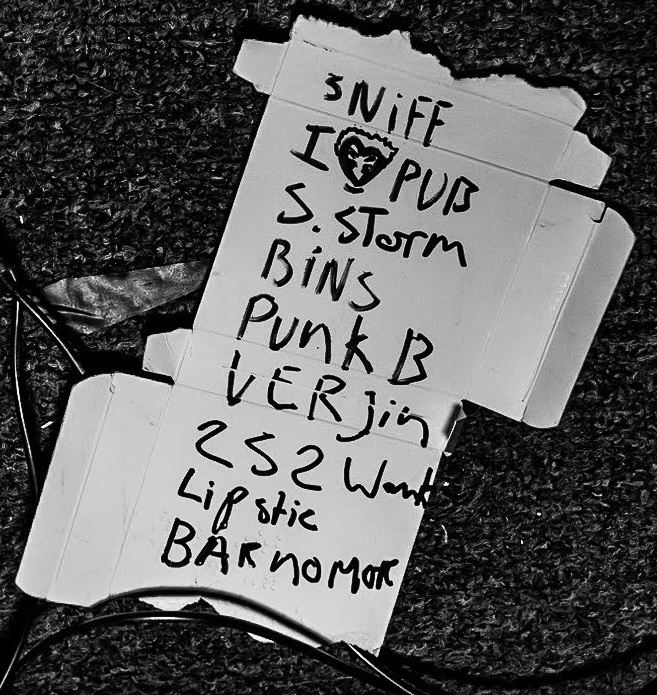 SNiFF
I ♥ PUB
S. STorm
BiNS
PUnk B
VERjin
252 Want
Lipstic
BARnoMOR